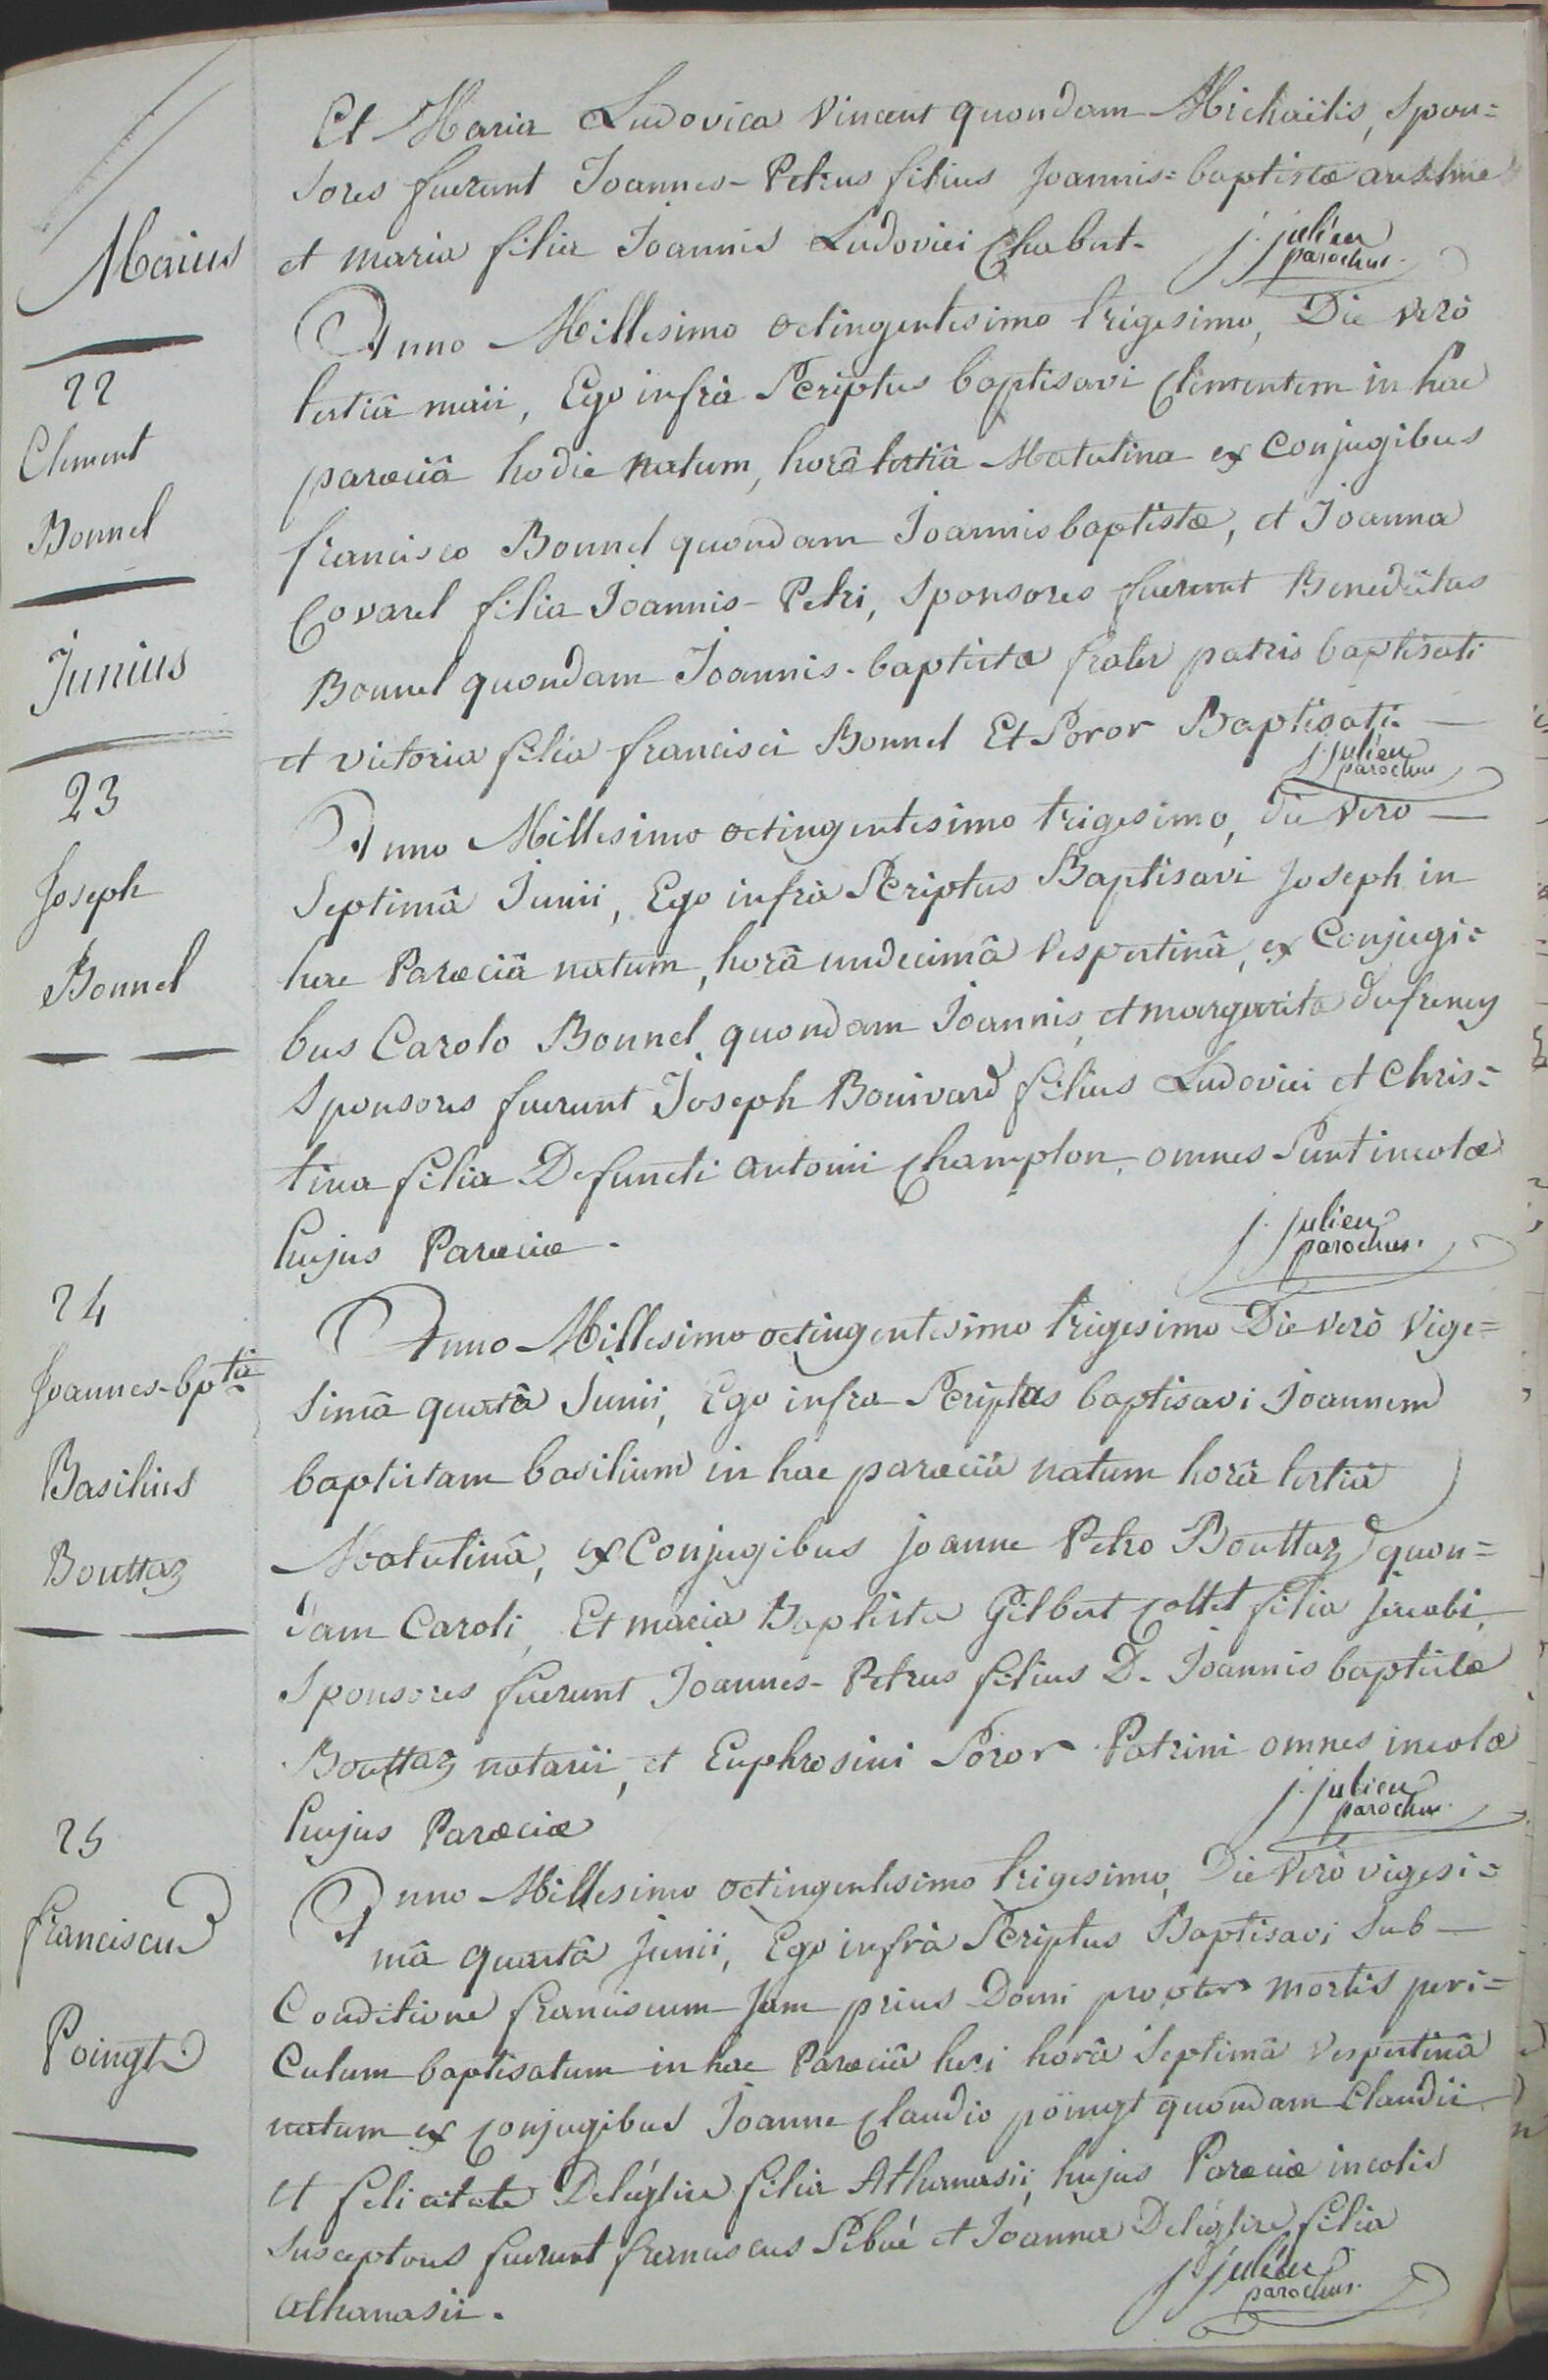 Et Maria Ludovica Vincent quondam Michaëlis, Spon=
sores fuerunt Joannes-Petrus filius Joannis=baptistæ anselme
et maria filia Joannis Ludovici Chabut-
j. julien
parochus.
Maius
Anno Millesimo octingentesimo trigesimo, Die verò
tertiâ maii, Ego infrà Scriptus baptisavi Clementem in hac
parœciâ hodie natum, horâ tertiâ Matutina ex Conjugibus
francisco Bonnel quondam Joannisbaptistæ, et Joanna
Covarel filia Joannis-Petri, Sponsores fuerunt Benedictus
Bonnel quondam Joannis-baptistæ frater patris baptisati
et victoria filia francisci Bonnel Et Soror Baptisati-
j. julien
parochus
22
Clement
Bonnel
Junius
Anno Millesimo octingentesimo trigesimo, die vero
Septimâ Junii, Ego infrà Scriptus Baptisavi Joseph in
hac Parœciâ natum, horâ undecimâ Vespertinâ, ex Conjugi=
bus Carolo Bonnel quondam Joannis, et margarita dufreney
Sponsores fuerunt Joseph Bouivard filius Ludovici et Chris=
tina filia Defuncti antonii Champlon, omnes Sunt incolæ
hujus Parœciæ.
j. julien
parochus.
23
Joseph
Bonnel
Anno Millesimo octingentesimo trigesimo Die verò Vige=
simâ quartâ Junii, Ego infra Scriptus baptisavi Joannem
baptistam basilium in hac parœciâ natum horâ tertiâ
Matutinâ, ex Conjugibus joanne Petro Bouttaz quon=
dam Caroli, Et maria Baptista Gilbert Collet filia jacobi,
Sponsores fuerunt Joannes-Petrus filius D. Joannis baptistæ
Bouttaz notarii, et Euphrosini Soror Patrini omnes incolæ
hujus Parœciæ
j. julien
parochus.
24
Joannes-bpta
Basilius
Bouttaz
Anno Millesimo octingentesimo trigesimo, Die Verò vigesi=
mâ quartâ Junii, Ego infrà Scriptus Baptisavi Sub
Conditione franciscum Jam prius Domi propter mortis peri=
Culum baptisatum in hac Parœciâ heri horâ Septimâ Vespertinâ
natum ex Conjugibus Joanne Claudio pöingt quondam Claudii
et felicitate Deléglise filia Athanasii, hujus Parœciæ incolis
Susceptores fuerunt franciscus Sibué et Joanna Deléglise filia
athanasii.
j. julien
parochus.
25
franciscus
Poingt